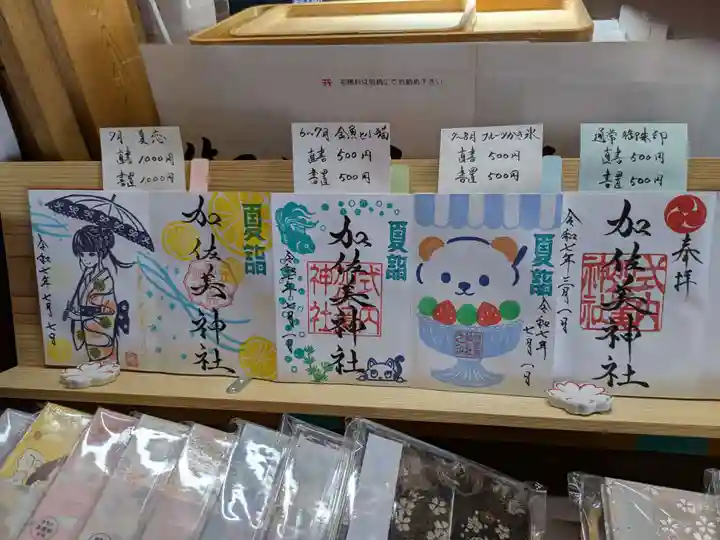 初穂料は別紙にてお納め下さい
7月 夏恋
直書 1000円
書置 1000円
6〜7月 金魚と小猫
直書 500円
書置 500円
7〜8月 フルーツかき氷
直書 500円
書置 500円
通常御朱印
直書 500円
書置 500円
夏詣
加佐美神社
令和七年七月七日
夏詣
加佐美神社
令和七年七月一日
夏詣
令和七年七月一日
奉拝
加佐美神社
式内
神社